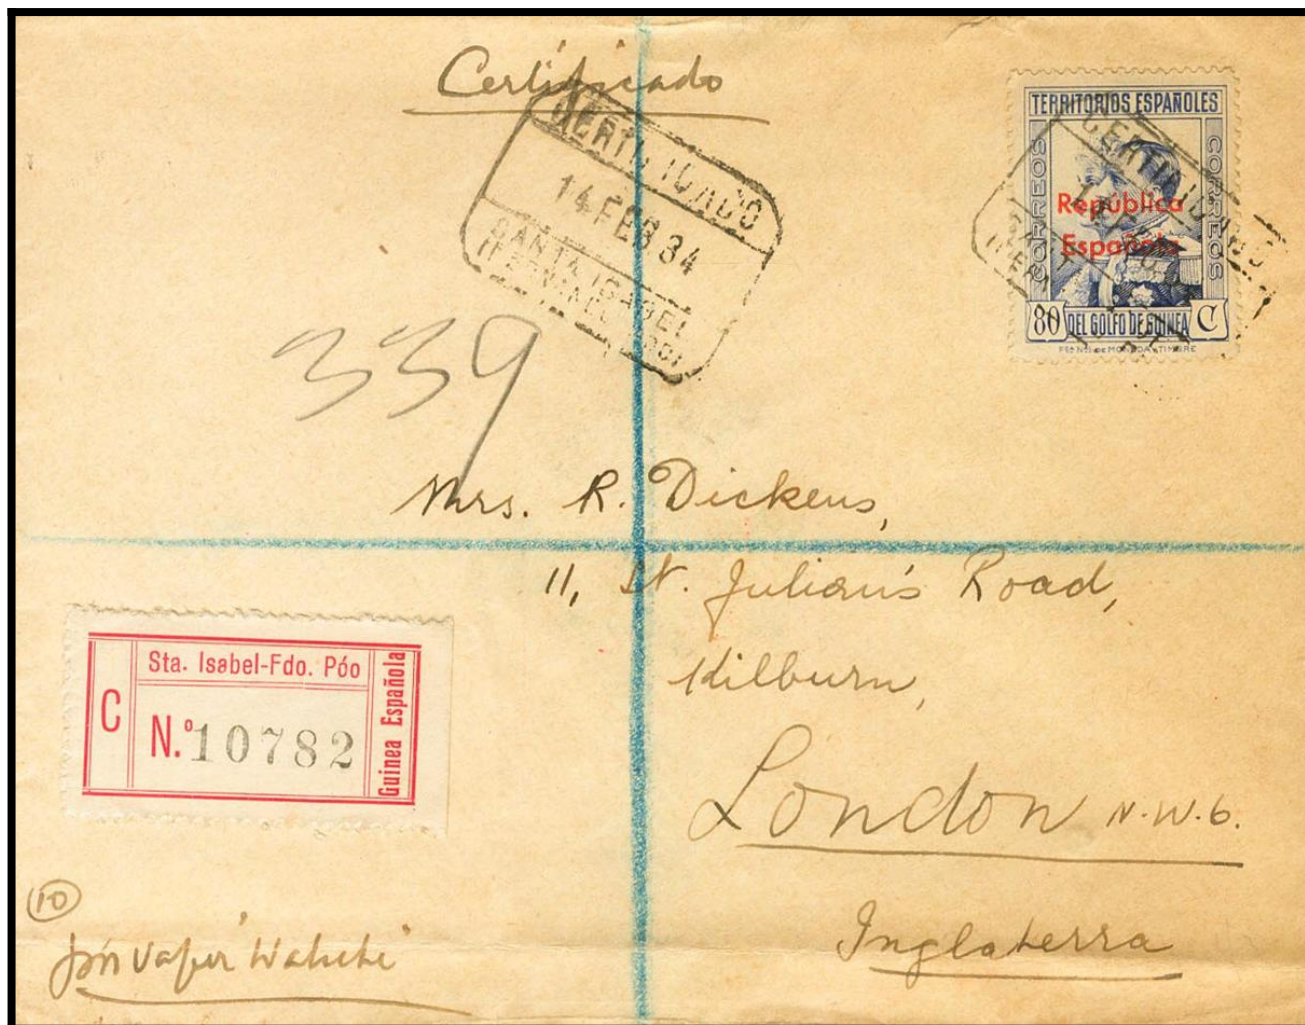 Certificado
CERTIFICADO
14 FEB 34
SANTA ISABEL
TERRITORIOS ESPAÑOLES
CORREOS
CORREOS
República
Española
80 DEL GOLFO DE GUINEA C
CERTIFICADO
339
Mrs. R. Dickens,
11, St. Julian's Road,
Kilburn,
London N.W.6.
Inglaterra
Sta. Isabel-Fdo. Póo
C
N.º 10782
Guinea Española
10
vapor